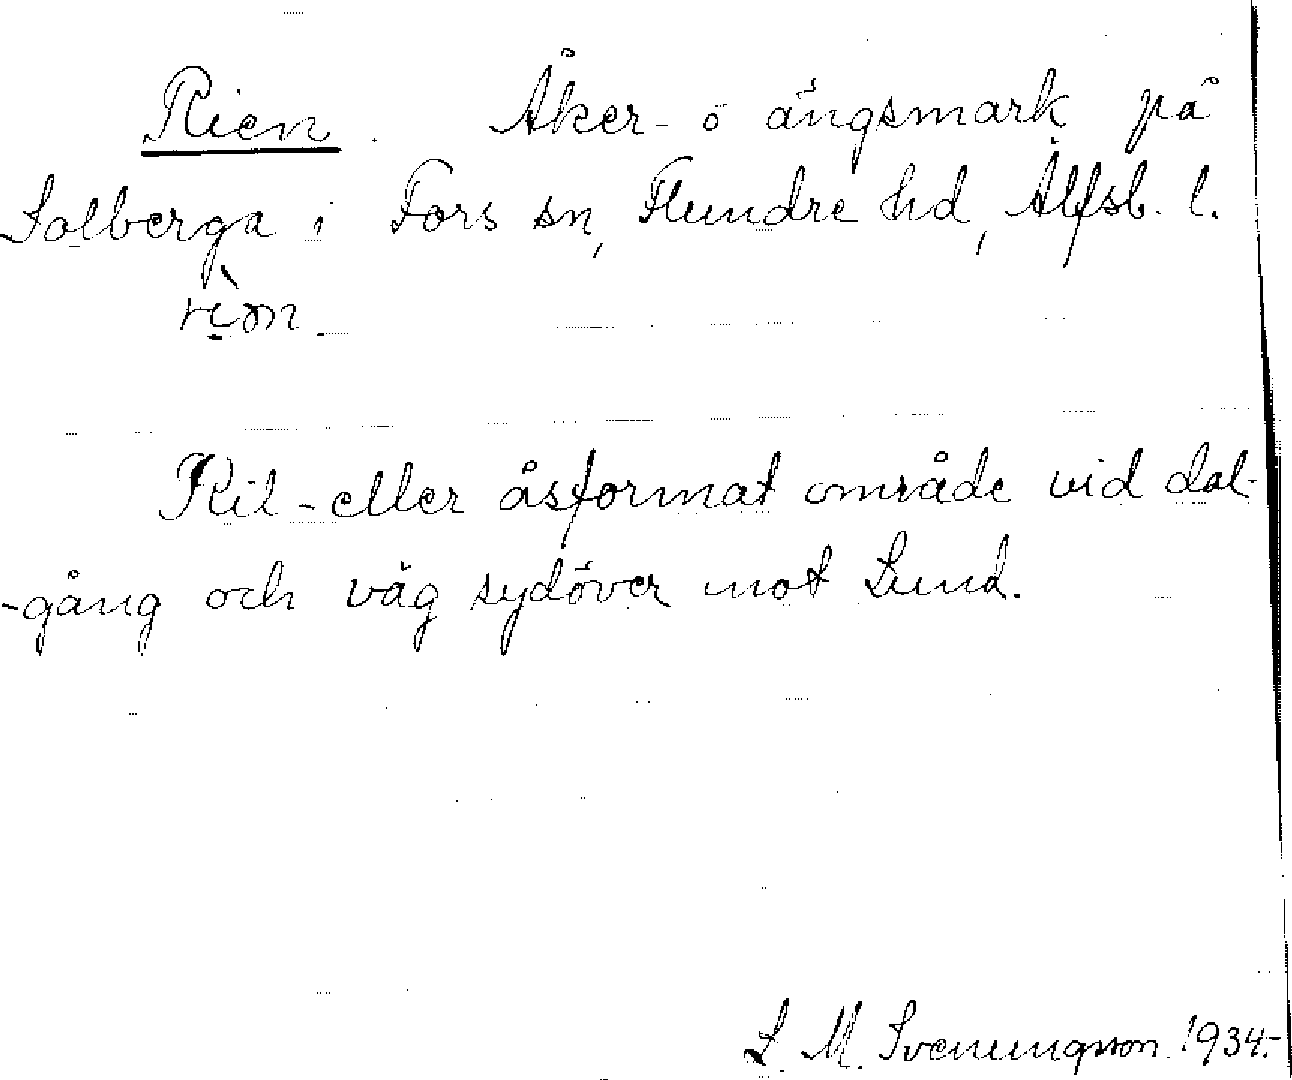 Rien. Åker- o ängsmark på
Solberga i Fors sn, Flundre hd, Älfsb. l.
Kil- eller åsformat område vid dal-
-gång och väg sydöver mot Lund.
S. M. Svenungsson 1934.-